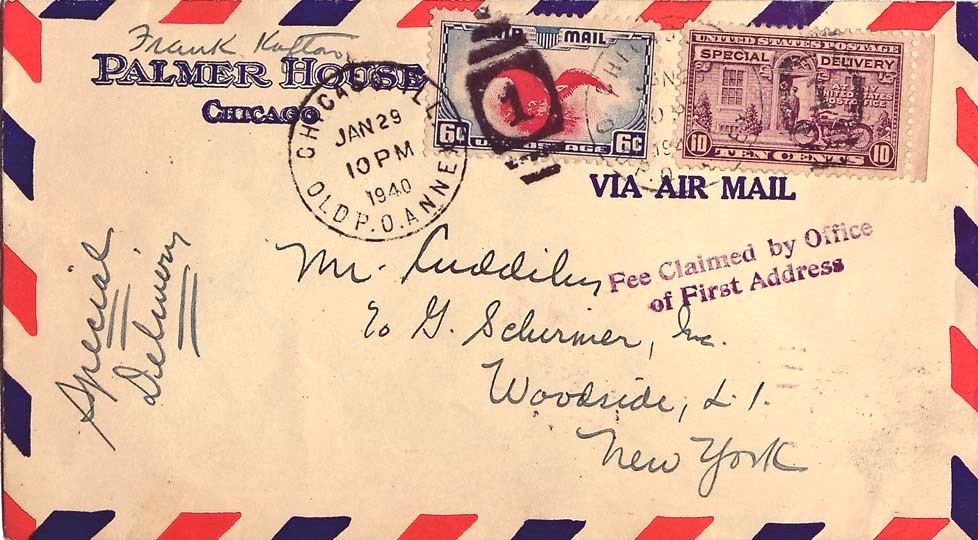 Frank
PALMER HOUSE
CHICAGO
CHICAGO, ILL.
JAN 29
10 PM
1940
OLD P.O. ANNEX
AIR MAIL
1
6¢ 6¢
U.S. POSTAGE
UNITED STATES POSTAGE
SPECIAL DELIVERY
AT ANY
UNITED STATES
POST OFFICE
10 TEN CENTS 10
VIA AIR MAIL
Fee Claimed by Office
of First Address
Special
Delivery
Mr.
c/o G. Schirmer, Inc.
Woodside, L.I.
New York